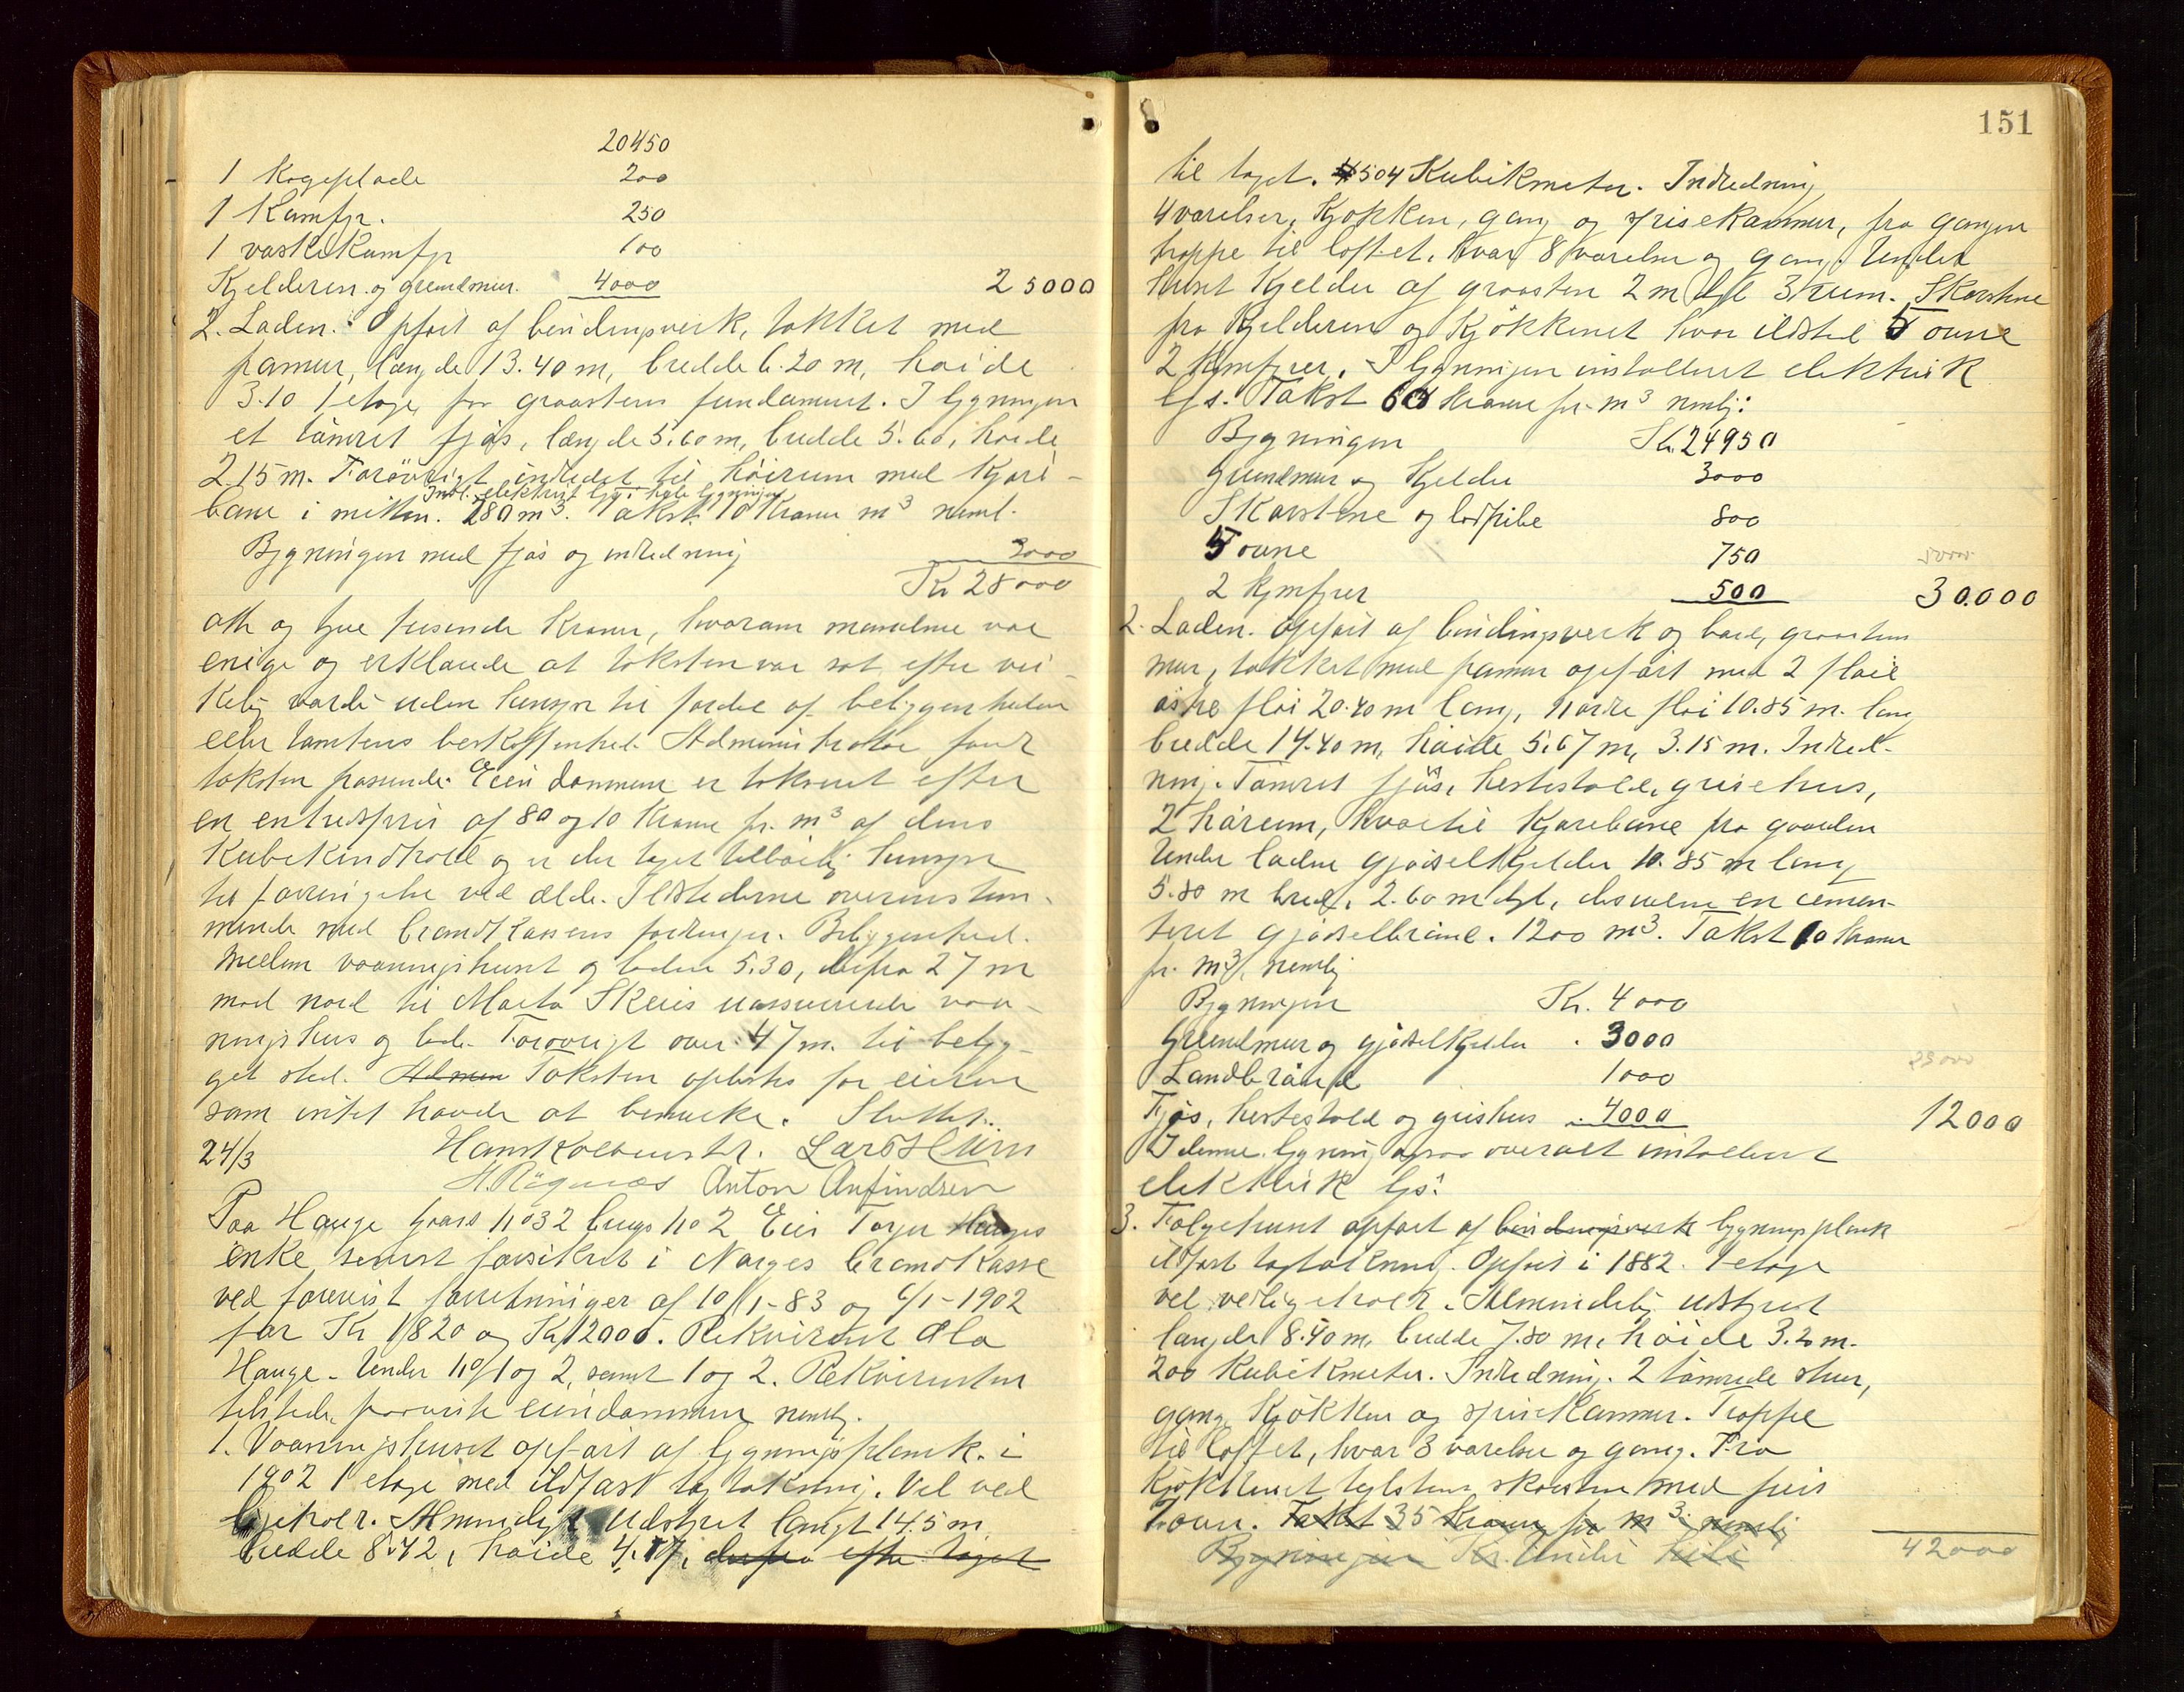 20450
1 Kogeplade 200
1 Kamfyr. 250
1 vaskekamfyr 100
Kjelderen og grundmur. 4000 25000
2. Laden. Opført af bindingsverk, tækket med
panner, længde 13.40 m, bredde 6.20 m, høide
3.10 1 etage, paa graastens fundament. I bygningen
et tømret fjøs, længde 5.60 m, bredde 5.60, høide
2.15 m. Forøvrigt indredet til høirum med kjøre-
Inst. elektrisk lys i hele bygningen
bane i midten. 280 m³. Takst 10 Kroner m³ neml.
Bygningen med fjøs og indredning 3000
Kr 28000
otte og tyve tusende Kroner, hvorom mændene var
enige og erklærede at taksten var sat efter vir-
kelig værdi uden hensyn til fordel af beliggenheden
eller tomtens beskaffenhed. Administrator fandt
taksten passende. Eiendommen er takseret efter
en enhedspris af 80 og 10 Kroner pr. m³ af dens
Kubikindhold og er der taget tilbørlig hensyn
til forringelse ved ælde. Ildstederne overenstem-
mende med brandkassens fordringer. Beliggenhed.
Mellem vaaningshuset og laden 5.30, derfra 27 m
mod nord til Marta Skeies uassurerede vaa-
ningshus og lade. Forøvrigt over 47 m. til bebyg-
get sted. Admin Taksten oplæstes for eieren
som intet havde at bemærke. Sluttet.
24/3 Hans Kolbenstv. Lars Hurn
H. Rögenes Anton Anfindsen
Paa Hauge Gaards No 32 brugs No 2 Eier Torger Hauges
enke senest forsikret i Norges Brandkasse
ved foreviste forretninger af 10/11-83 og 6/1-1902
for Kr 1820 og Kr 12000. Rekvirent Ola
Hauge. Under No 1 og 2, samt 1 og 2. Rekvirenten
tilstede, paaviste eiendommen nemlig.
1. Vaaningshuset opført af bygningsplank i
1902 1 etage med ildfast tagtækning. Vel ved
ligeholdt. Almindeligt Udstyret længde 14.5 m
bredde 8.42, høide 4.17, derfra efter taget
151
til taget. 504 Kubikmeter. Indredning
4 værelser, Kjøkken, gang og spisekammer, fra gangen
trappe til loftet, hvor 8 værelser og gang. Under
huset Kjelder af graasten 2 m dyb 3 rum. Skorstene
fra Kjelderen og Kjøkkenet hvor ildsted 5 ovne
2 komfyrer. I bygningen installeret elektrisk
lys. Takst 60 Kroner pr. m³ nemlig:
Bygningen Kr. 24950
Grundmur og Kjelder 3000
Skorstene og lodpibe 800
5 ovne 750
2 komfyrer 500 30.000
2. Laden. Opført af bindingsverk og bord, graastens
mur, tækket med panner opført med 2 fløie
østre fløi 20.40 m lang, nordre fløi 10.85 m. lang
bredde 14.40 m, høide 5.67 m, 3.15 m. Indred-
ning. Tømret fjøs, hestestald, grisehus,
2 hørum, hvortil Kjørebane fra gaarden
Under laden gjødselkjelder 10.85 m lang
5.80 m bred, 2.60 m dyb, desuden en cemen-
teret gjødselbrønd. 1200 m³. Takst 10 Kroner
pr. m³, nemlig
Bygningen Kr. 4000
Grundmur og gjødselkjelder . 3000
Landbrønd 1000
Fjøs, hestestald og grishus . 4000 12000
I denne bygning ogsaa overalt installeret
elektrisk lys.
3. Følgehuset opført af bindingsverk bygningsplank
ildfast tagtækning. Opført i 1882. 1 etage
vel vedligeholdt. Almindelig udstyret
længde 8.40 m, bredde 7.80 m, høide 3.20 m.
200 Kubikmeter. Indredning. 2 tømrede stuer,
gang, Kjøkken og spiseKammer. Trappe
til loftet, hvor 3 værelser og gang. Fra
Kjøkkenet teglstens skorsten med peis
1 ovn. Takst 35 Kroner pr m³ nemlig
Bygningen Kr. 42000